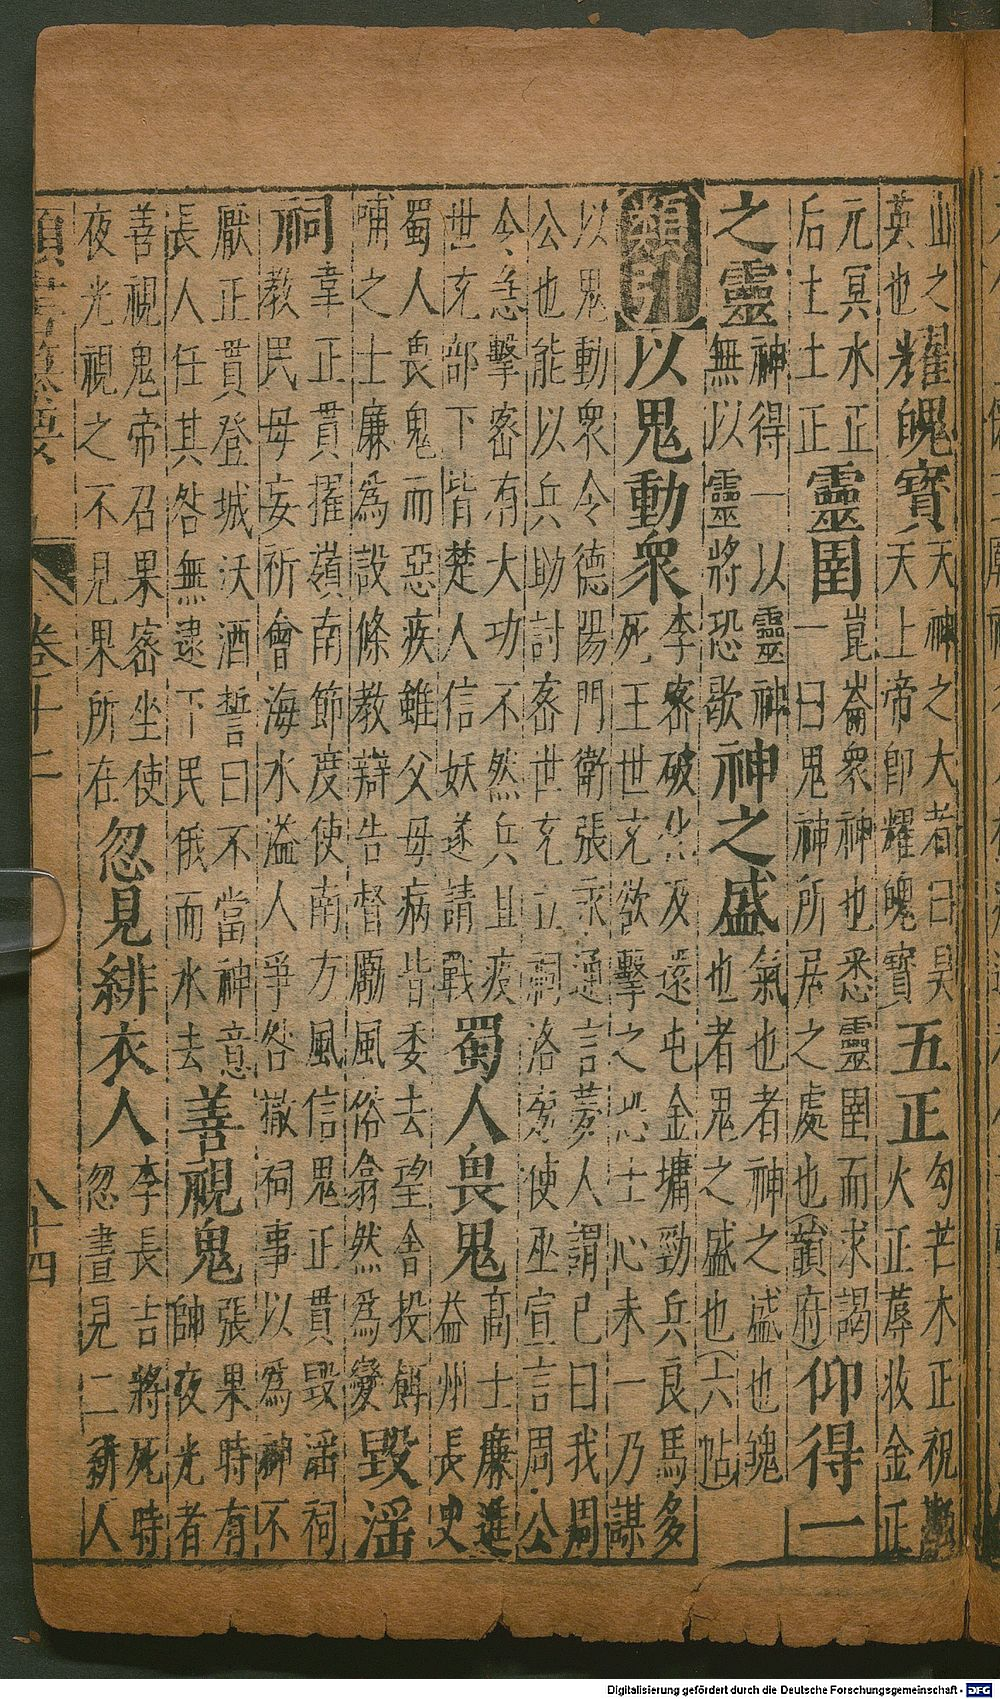 山之英也耀魄寶天神之大者曰昊天上帝即耀魄寶五正勾芒木正祝融火正蓐收金正
元冥水正后土土正靈圉崑崙衆神也悉靈圉而求謁一曰鬼神所居之處也(韻府)仰得一
之靈神得一以靈神無以靈將恐歇神之盛氣也者神之盛也魄也者鬼之盛也(六帖)
類以鬼動衆李密破化及還屯金墉勁兵良馬多死王世充欲擊之恐士心未一乃謀
以鬼動衆令德陽門衛張永通言夢人謂已曰我周公也能以兵助討密世充立祠洛旁使巫宣言周公
令急擊密有大功不然兵且疫世充部下皆楚人信妖遂請戰蜀人畏鬼高士廉進益州長史
蜀人畏鬼而惡疾雖父母病皆委去望舍投餌哺之士廉為設條教辯告督勵風俗翕然為變毀滛
祠韋正貫擢嶺南節度使南方風信鬼正貫毀滛祠教民毋妄祈會海水溢人爭咎撤祠事以為神不
厭正貫登城沃酒誓曰不當神意長人任其咎無逮下民俄而水去善視鬼張果時有帥夜光者
善視鬼帝召果密坐使夜光視之不見果所在忽見緋衣人李長吉將死時忽晝見二緋人
類書纂要 卷十二 八十四
Digitalisierung gefördert durch die Deutsche Forschungsgemeinschaft - DFG